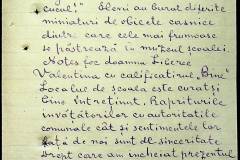 cucul!" Elevii au lucrat diferite
miniaturi de obiecte casnice
dintre care cele mai frumoase
se păstrează în muzeul școalei.
Notes foc doamna
Valentina cu calificativul „Bine"
Localul de școală este curat și
bine întreținut. Raporturile
învățătorilor cu autoritatile
comunale cât și sentimentele lor
față de noi sunt de sinceritate
Drept care am incheiat prezentul